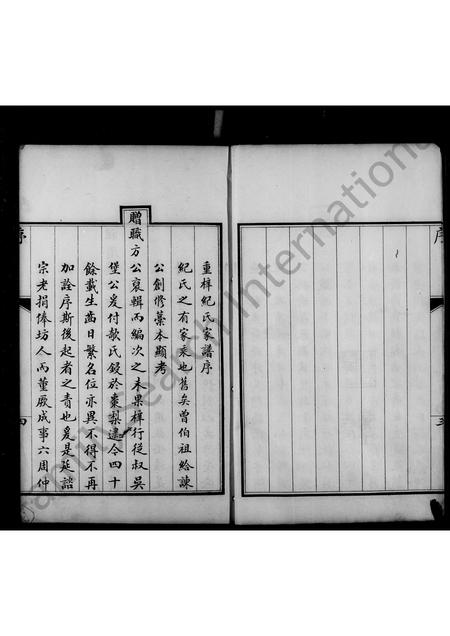 序
三
重梓紀氏家譜序
紀氏之有家乘也舊矣曾伯祖給諫
公創修藁本顯考
贈職方公裒輯而編次之未果梓行從叔吳
堡公爰付歙氏鋟於棗梨逮今四十
餘載生齒日繁名位亦異不得不再
加詮序斯後起者之責也爰是延諮
宗老捐俸坊人而董厥成事六周仲
序
四
International